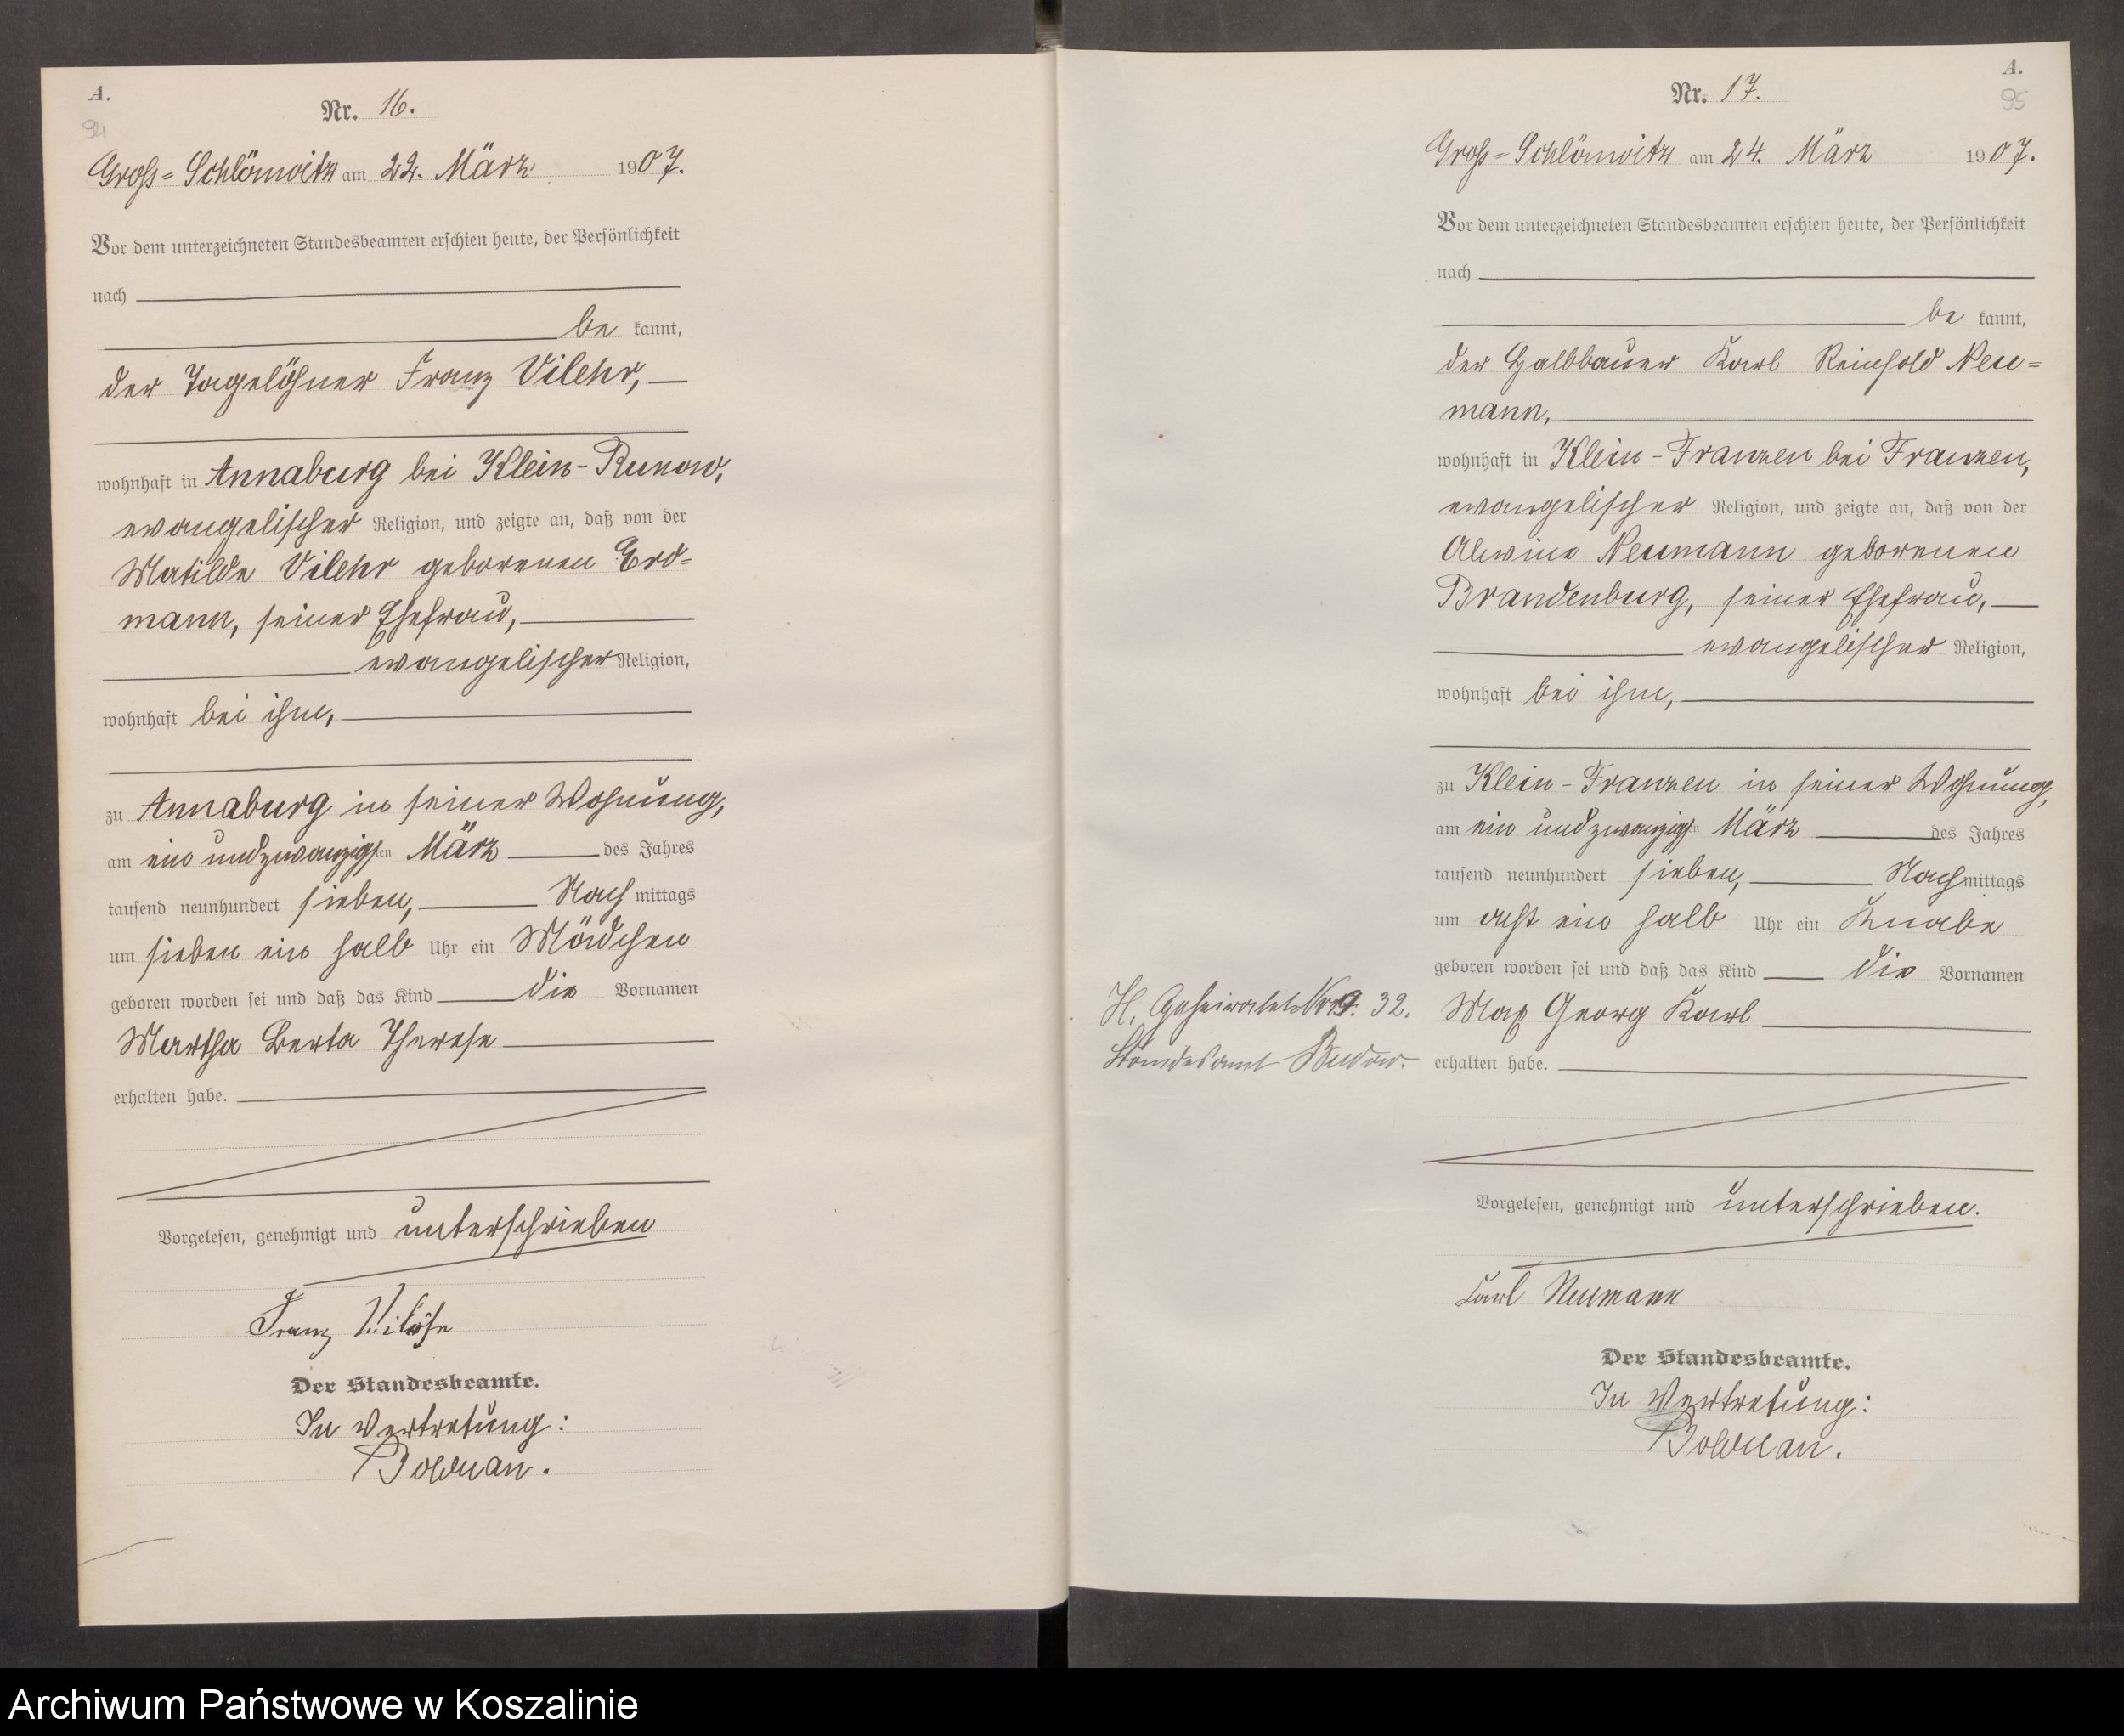 A.
94
Nr. 16.
Groß-Schlönwitz am 22. März 1907.
Vor dem unterzeichneten Standesbeamten erschien heute, der Persönlichkeit
nach
be kannt,
der Tagelöhner Franz Vilehr,
wohnhaft in Annaburg bei Klein-Runow,
evangelischer Religion, und zeigte an, daß von der
Matilde Vilehr geborenen Erd=
mann, seiner Ehefrau,
evangelischer Religion,
wohnhaft bei ihm,
zu Annaburg in seiner Wohnung,
am ein und zwanzigsten März des Jahres
tausend neunhundert sieben, Nach mittags
um sieben ein halb Uhr ein Mädchen
geboren worden sei und daß das Kind die Vornamen
Martha Berta Therese
erhalten habe.
Vorgelesen, genehmigt und unterschrieben
Franz
Der Standesbeamte.
In Vertretung:
Bolduan.
A.
95
Nr. 17.
Groß-Schlönwitz am 24. März 1907.
Vor dem unterzeichneten Standesbeamten erschien heute, der Persönlichkeit
nach
be kannt,
der Halbbauer Karl Reinhold Neu=
mann,
wohnhaft in Klein-Franzen bei Franzen,
evangelischer Religion, und zeigte an, daß von der
Alwine Neumann geborenen
Brandenburg, seiner Ehefrau,
evangelischer Religion,
wohnhaft bei ihm,
zu Klein-Franzen in seiner Wohnung,
am ein und zwanzigsten März des Jahres
tausend neunhundert sieben, Nach mittags
um acht ein halb Uhr ein Knabe
geboren worden sei und daß das Kind die Vornamen
H. Geheiratet Nr 9. 32.
Standesamt Budow.
Max Georg Karl
erhalten habe.
Vorgelesen, genehmigt und unterschrieben.
Karl Neumann
Der Standesbeamte.
In Vertretung:
Bolduan.
Archiwum Państwowe w Koszalinie